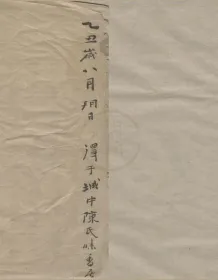 乙丑歲八月朔日 得于城中陳氏味書居